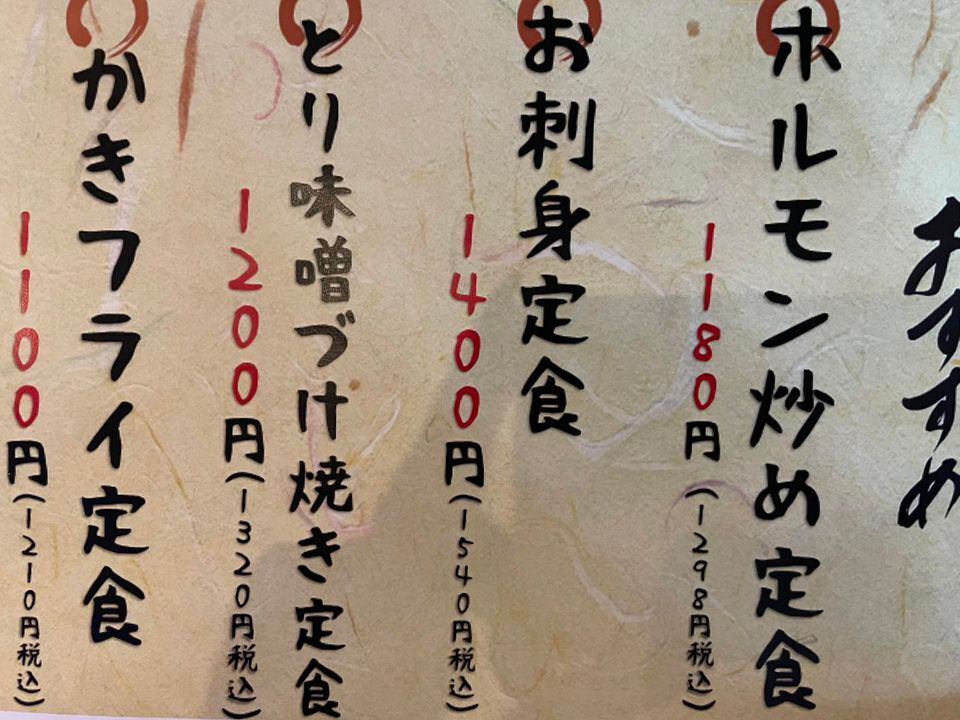 おすすめ
ホルモン炒め定食
1180円(1298円税込)
お刺身定食
1400円(1540円税込)
とり味噌づけ焼き定食
1200円(1320円税込)
かきフライ定食
1100円(1210円税込)